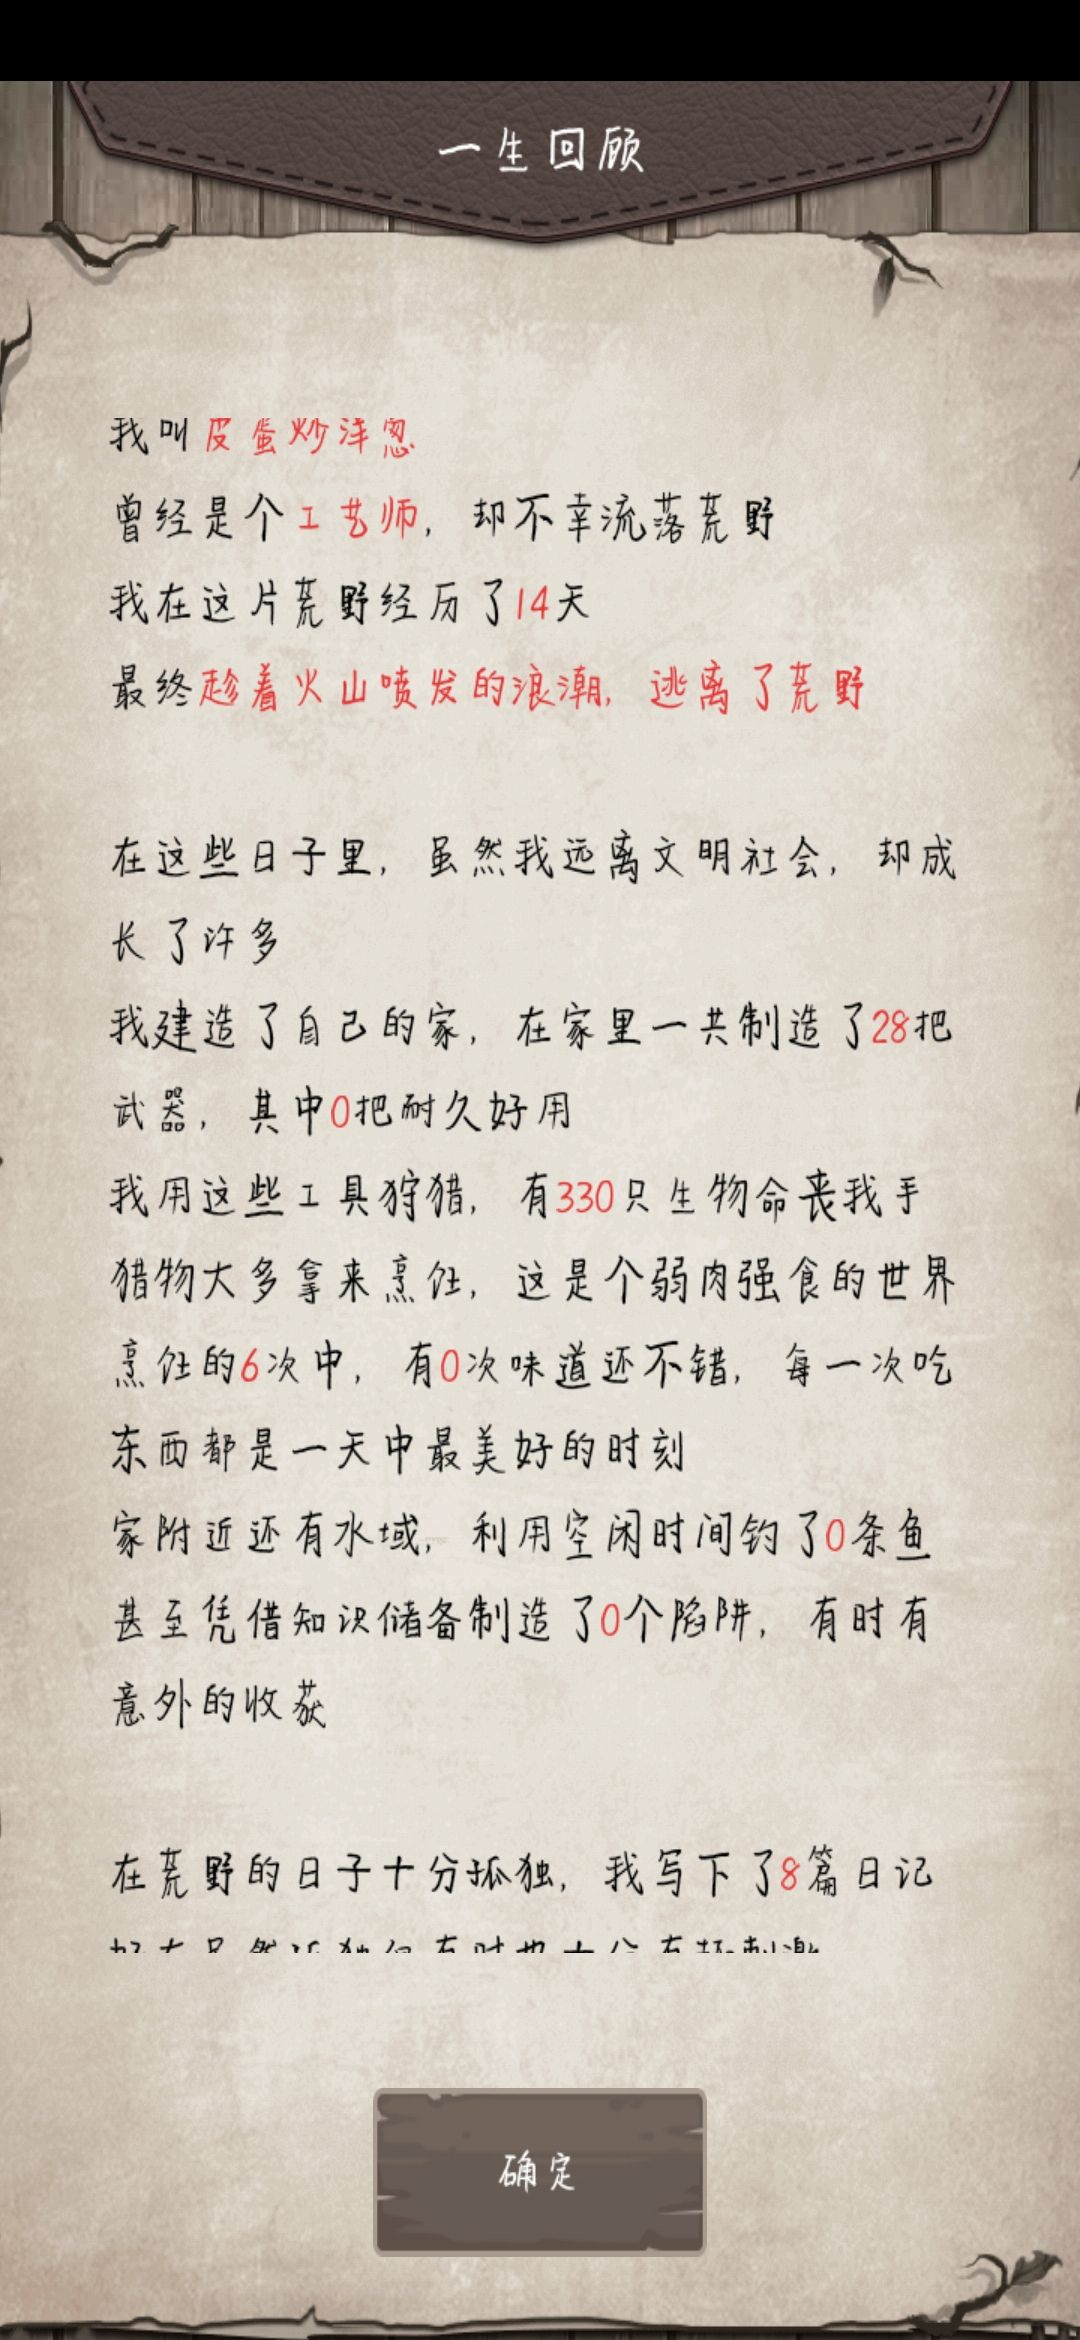 一生回顾
我叫皮蛋炒洋葱
曾经是个工艺师，却不幸流落荒野
我在这片荒野经历了14天
最终趁着火山喷发的浪潮，逃离了荒野
在这些日子里，虽然我远离文明社会，却成
长了许多
我建造了自己的家，在家里一共制造了28把
武器，其中0把耐久好用
我用这些工具狩猎，有330只生物命丧我手
猎物大多拿来烹饪，这是个弱肉强食的世界
烹饪的6次中，有0次味道还不错，每一次吃
东西都是一天中最美好的时刻
家附近还有水域，利用空闲时间钓了0条鱼
甚至凭借知识储备制造了0个陷阱，有时有
意外的收获
在荒野的日子十分孤独，我写下了8篇日记
确定